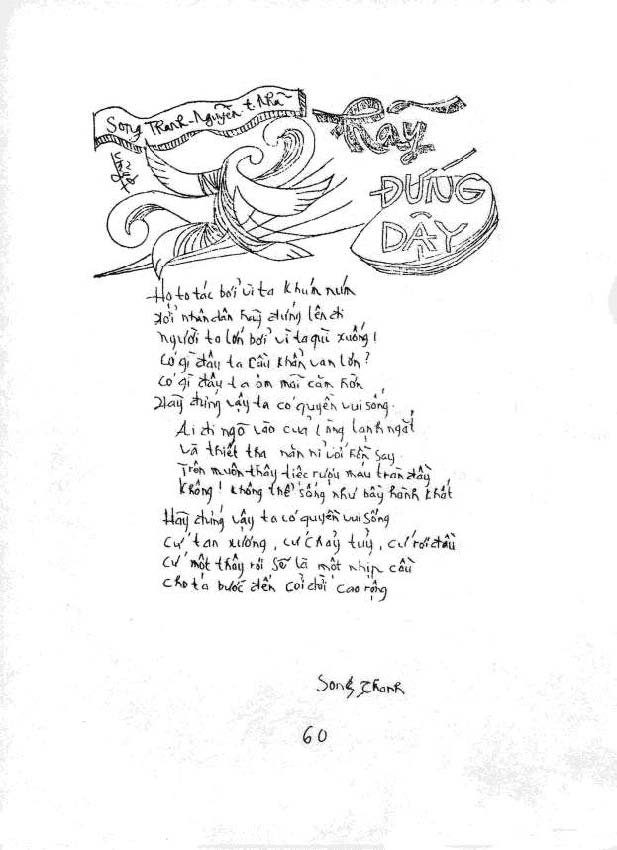 Song Thanh-Nguyễn.t.Nhã
Hãy
ĐỨNG
DẬY
Họ to tác bởi vì ta khúm núm
Hỡi nhân dân hãy đứng lên đi
người ta lớn bởi vì ta quì xuống!
Có gì đâu ta cầu khẩn van lớn?
Có gì đâu ta ôm mãi căm hờn
Hãy đứng vậy ta có quyền vui sống.
Ai đi ngõ vào cửa lòng lạnh ngắt
Và thiết tha năn nỉ với hồn say
Trên muôn thây tiệc rượu máu tràn đầy
Không! không thể sống như bầy hành khất
Hãy đứng vậy ta có quyền vui sống
Cứ tan xương, cứ chảy tuỷ, cứ rơi đầu
Cứ một thây rơi sẽ là một nhịp cầu
Cho ta bước đến cõi đời cao rộng
Song Thanh
60